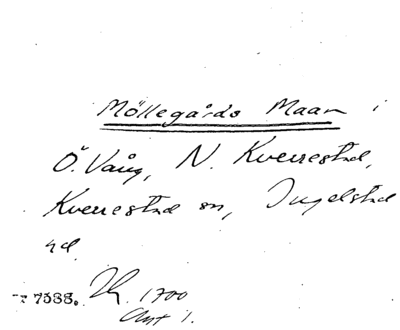 Möllegårds Maan i
Ö. Vång, N. Kverrestad,
Kverrestad sn, Ingelstad
hd.
7588. 1700
Avst 1.